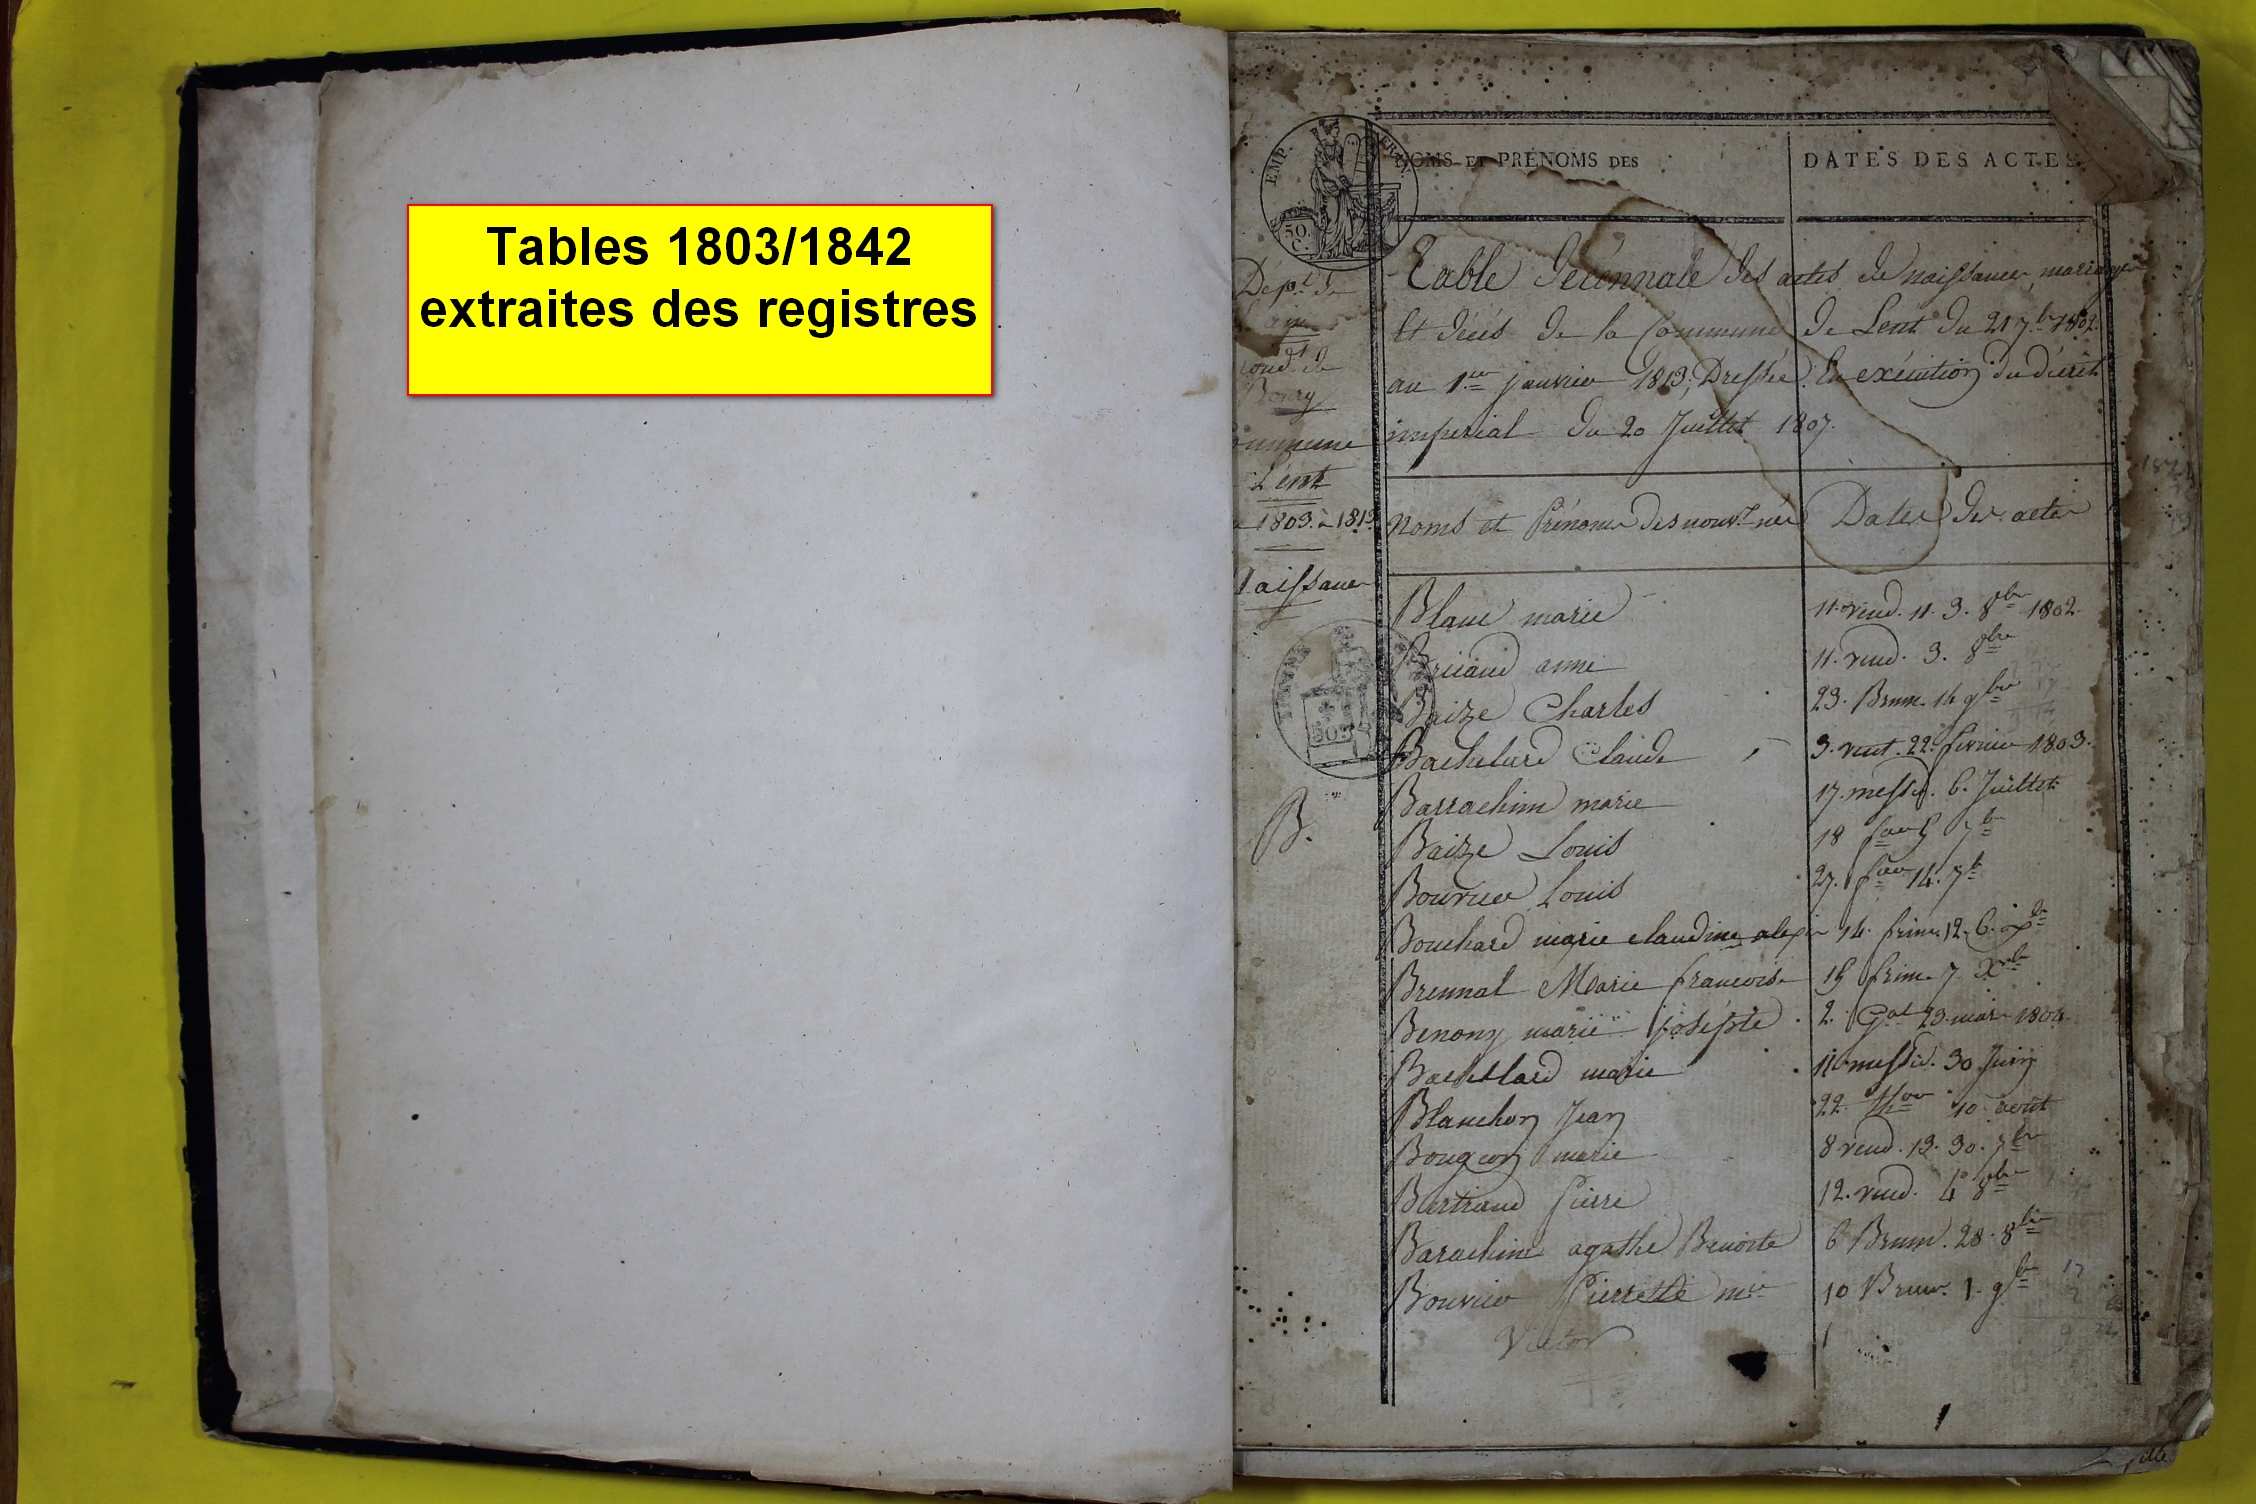 Tables 1803/1842
extraites des registres
EMP. FRAN.
50.
C.
NOMS ET PRÉNOMS DES
DATES DES ACTES
Dépt. de
l'ain
Table décénnale des actes de naissance, mariage
et décés de la Commune de Lent du 21 7.bre 1802.
au 1.er janvier 1813; Dressée En exécution du décret
impérial du 20 Juillet 1807.
arrond.t de
Bourg
Commune
Lent
1803 à 1813
Naissance
Noms et Prénoms des nouv.x nés
Dates des actes
B.
Blanc marie 11. vend. 11. 3. 8bre 1802.
Bricaud anne 11. vend. 3. 8bre
Baize Charles 23. Brum. 14 9bre
Bachelard Claude 3. vent. 22. février 1803.
Barrachin marie 17. messid. 6. Juillet
Baize Louis 18 7b
Bouvier Louis 27. 14. 7b
Bouchard marie claudine 14. frim. 12. 6.
Brennat Marie francoise 15 frim. 7 Xbre
Benony marie josépte 2. Gal 23 mars 1804.
Bachelard marie 11 messid. 30 Juin
Blanchon Jean 22. 10 août
Bougeon marie 8 vend. 13. 30. 7bre
Bertrand Pierre 12. vend. 4 8bre
Barachin agathe Benoite 6 Brum. 28. 8bre
Bouvier Pierrette mie 10 Brum. 1. 9b
Victor